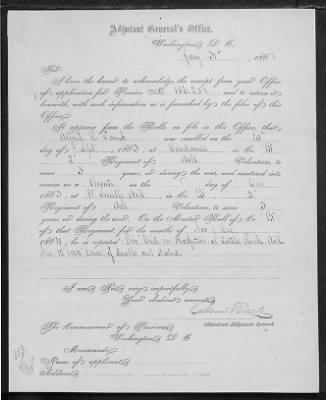 Adjutant General's Office,
Washington, D. C.
Jany 31st, 1867
Sir:
I have the honor to acknowledge the receipt from your Office
of application for Pension No. 136.251, and to return it
herewith, with such information as is furnished by the files of this
Office.
It appears from the Rolls on file in this Office, that
was enrolled on the 10
day of Sept, 1863, at in Co. B
2 Regiment of Ark Volunteers, to
serve 3 years, or during the war, and mustered into
service as a Private on the day of
1863, at Ark, in Co. B, 2
Regiment of Ark Volunteers, to serve 3
years, or during the war. On the Muster Roll of Co. B
of that Regiment, for the months of Nov & Dec
1864, he is reported in Hospital at Little Rock Ark
Nov. 12 1864 Cause of death not stated.
I am Sir, very respectfully,
Your obedient servant,
Assistant Adjutant General
The Commissioner of Pensions
Washington, D. C.
Memoranda:
Name of applicant
Address